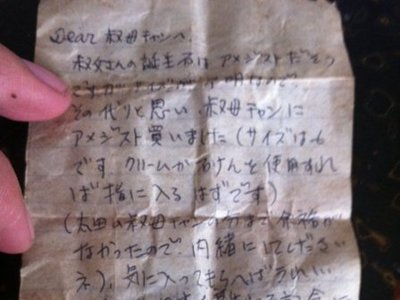 Dear 叔母チャンへ.
叔父さんの誕生石はアメジストだそう
ですがサイズが不明なので、
その代りと思い、叔母チャンに
アメジスト買いました(サイズは-6
です. クリームか石けんを使用すれ
ば指に入るはずです)
(太田の叔母チャンの分まで余裕が
なかったので、内緒にしてください
ネ)、気に入ってもらへばうれしい